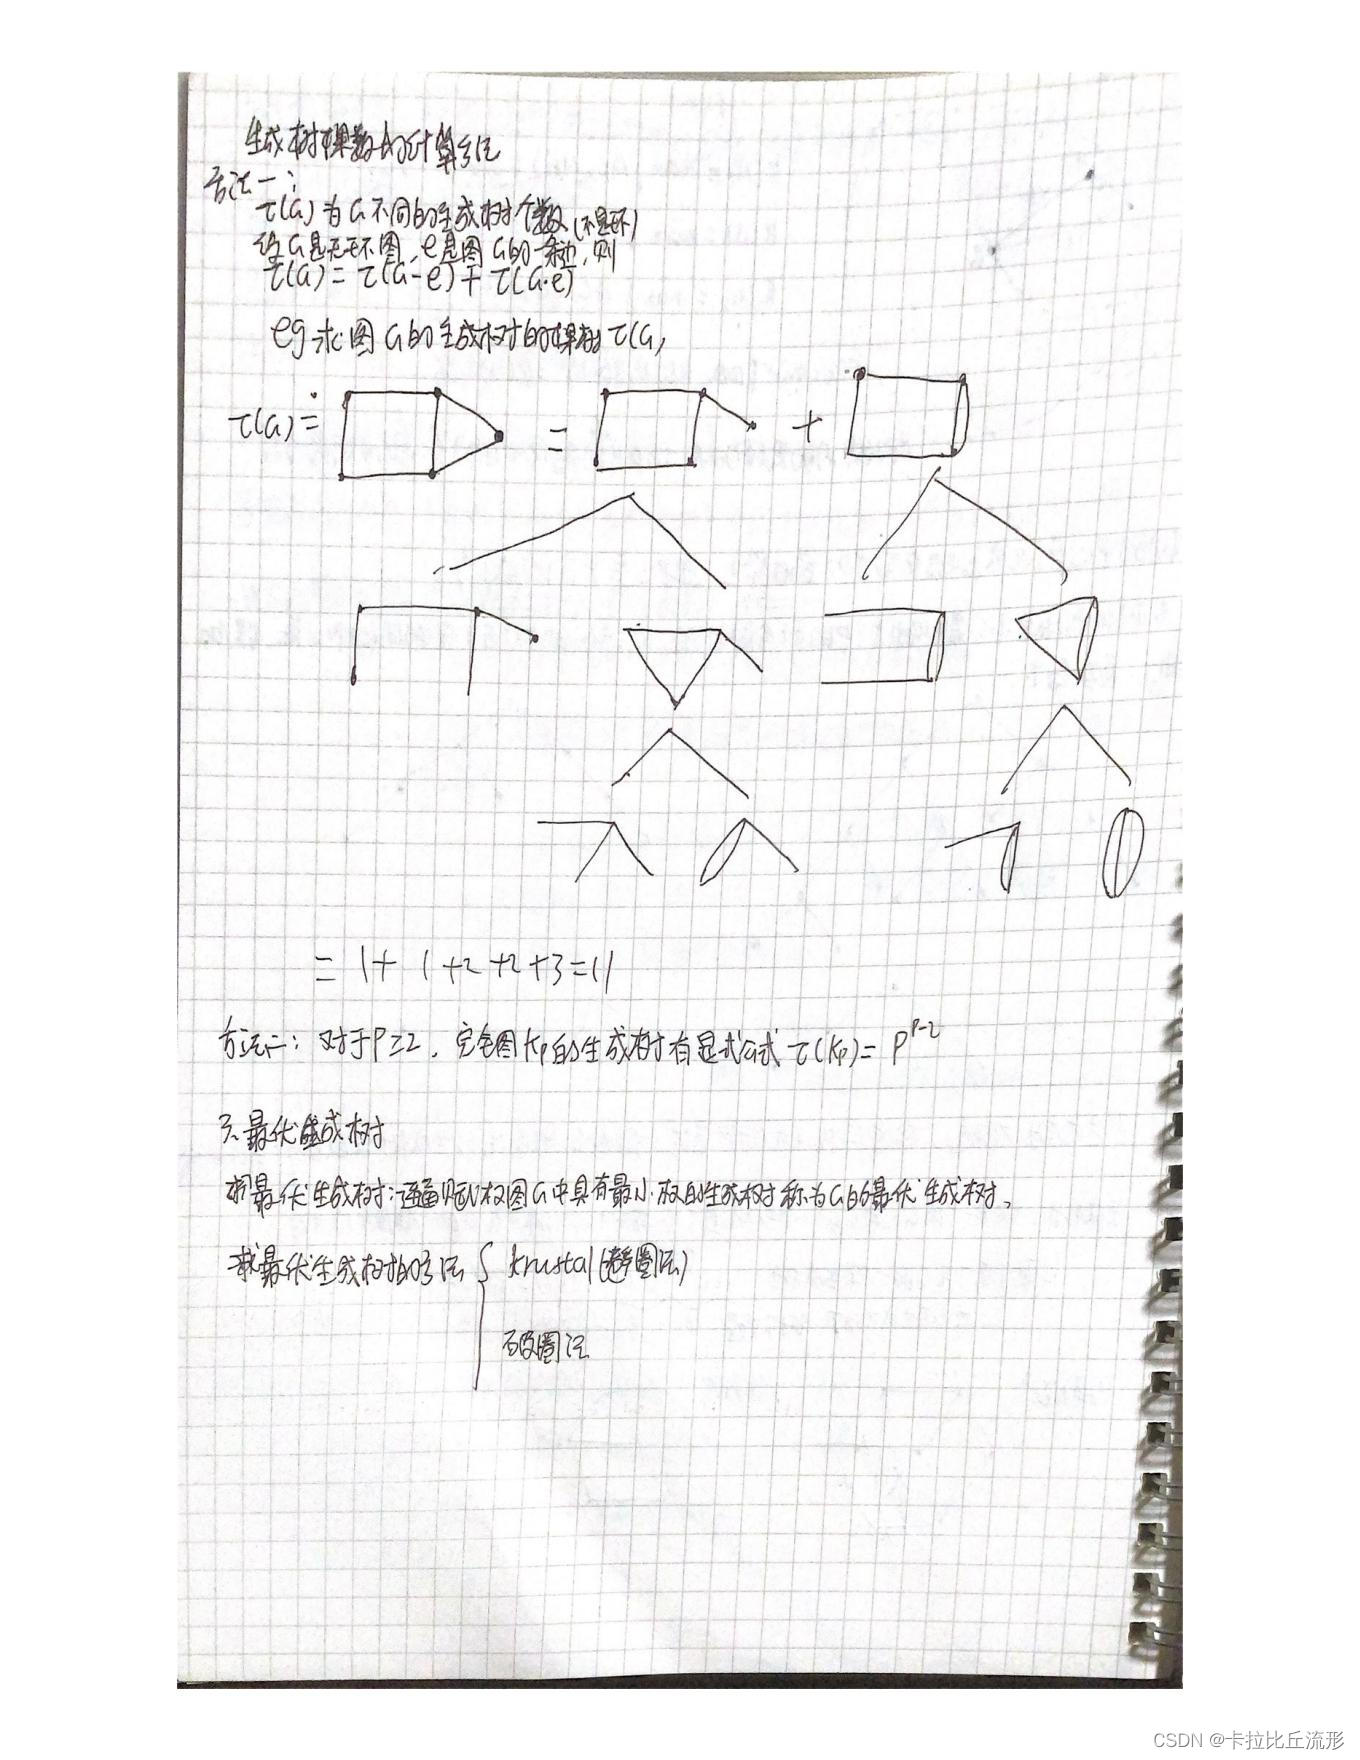 生成树棵数的计算方法
方法一:
τ(G)为G不同的生成树个数(不是环)
设G是无环图,e是图G的一条边,则
τ(G) = τ(G-e) + τ(G·e)
eg 求图G的生成树的棵数τ(G)
τ(G) = = +
= 1+ 1 +2 +2 +3 = 11
方法二: 对于P≥2, 完全图Kp的生成树有显式公式 τ(Kp) = P^{P-2}
3. 最优生成树
最优生成树:连通赋权图G中具有最小权的生成树称为G的最优生成树.
求最优生成树的方法 { kruskal(避圈法)
破圈法
CSDN @卡拉比丘流形